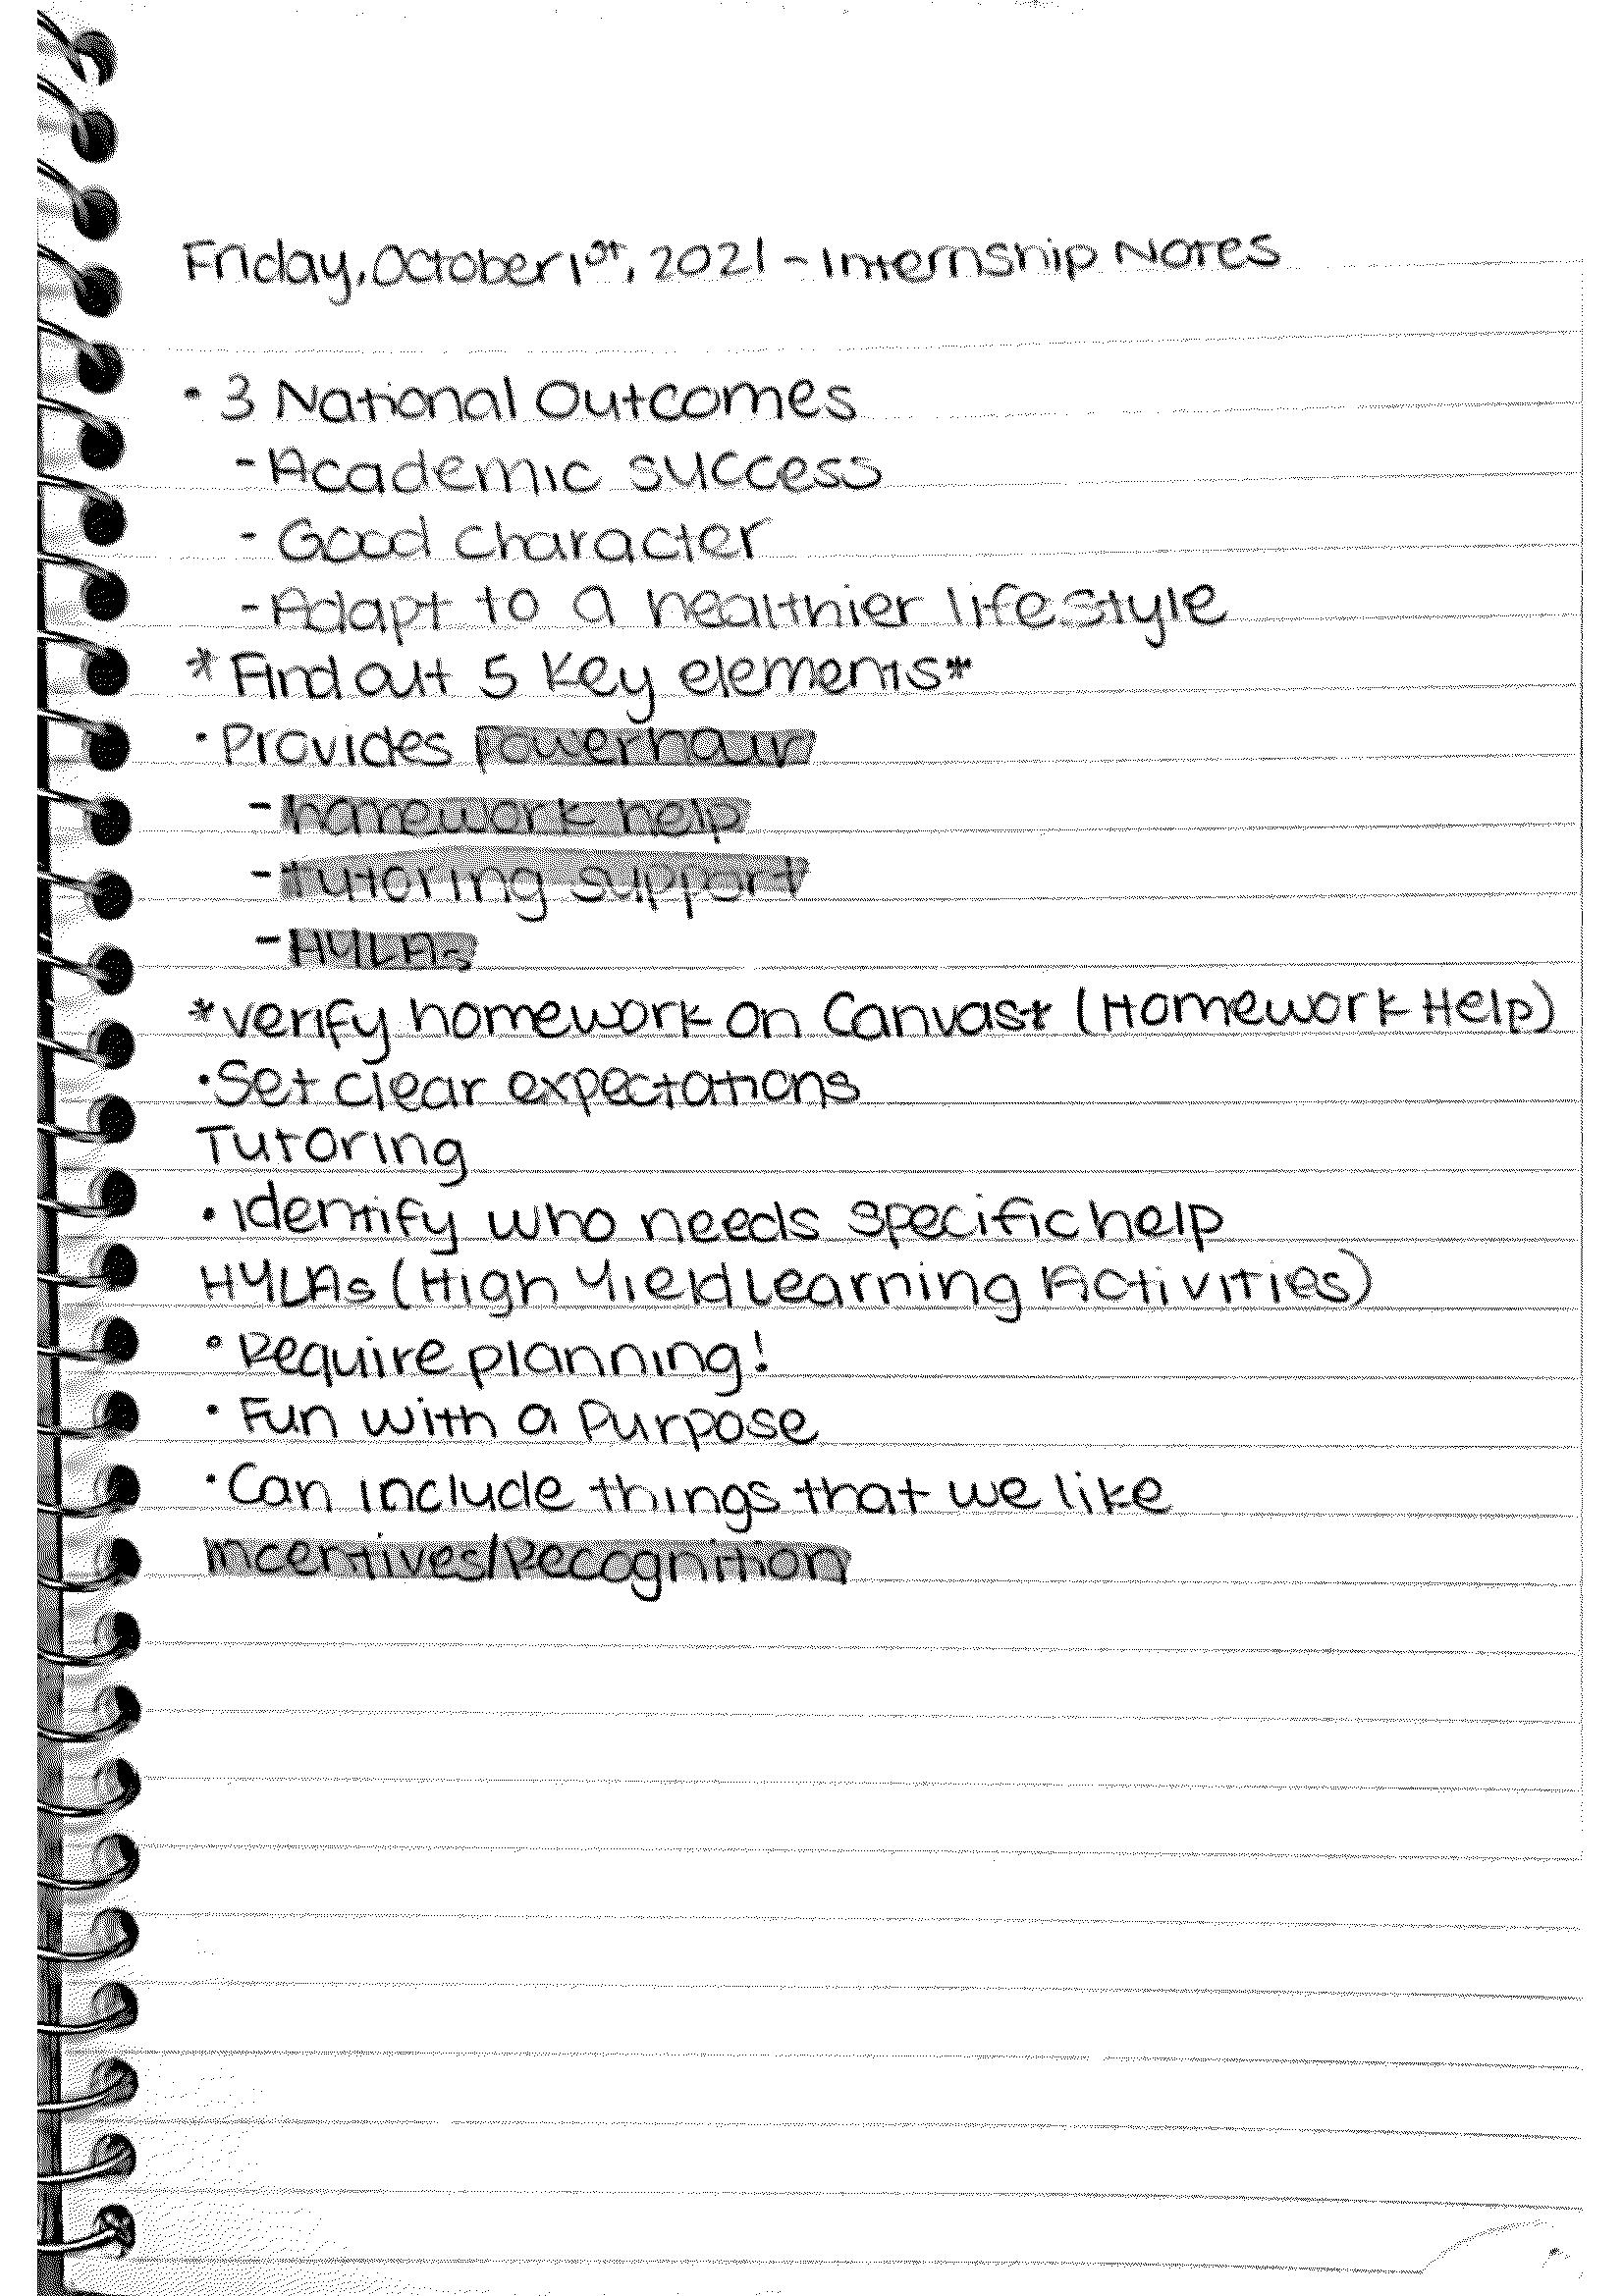 Friday, October 1st, 2021 - Internship Notes
• 3 National Outcomes
- Academic success
- Good character
- Adapt to a healthier lifestyle
*Find out 5 key elements*
• Provides powerhour
- homework help
- tutoring support
- HYLAs
*verify homework on Canvas* (Homework Help)
• Set clear expectations
Tutoring
• identify who needs specific help
HYLAs (High Yield Learning Activities)
• Require planning!
• Fun with a Purpose
• Can include things that we like
Incentives/Recognition